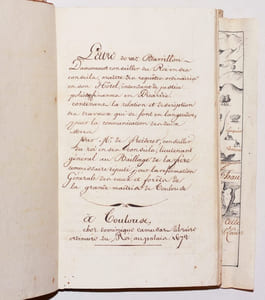 Lettre de Mr. Barrillon
Damoncourt conseiller du Roi en ses
conseils, maître des requêtes ordinaire
en son Hotel, intendant de justice
police finances en Picardie
contenant la relation et description
des travaux qui se font en languedoc,
pour la communication des deux
mers
par Mr. de froidour, conseiller
du roi en ses conseils, lieutenant
général au Baillage de la fère
commissaire député pour la reformation
Générale des eaux et forêts de
la grande maitrise de Toulouse
à Toulouse,
chez dominique camusat libraire
du Roi, au palais 1672